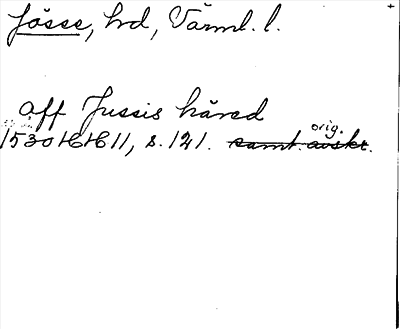 Jösse, hrd, Värml. l.
Aff Jussis häred
orig.
1530 HH 11, s. 121. samt. avskr.